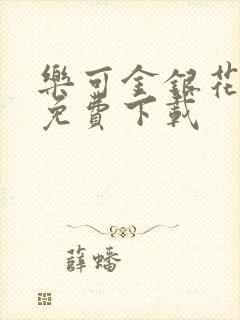 樂可金銀花
免費下載
薛蟠